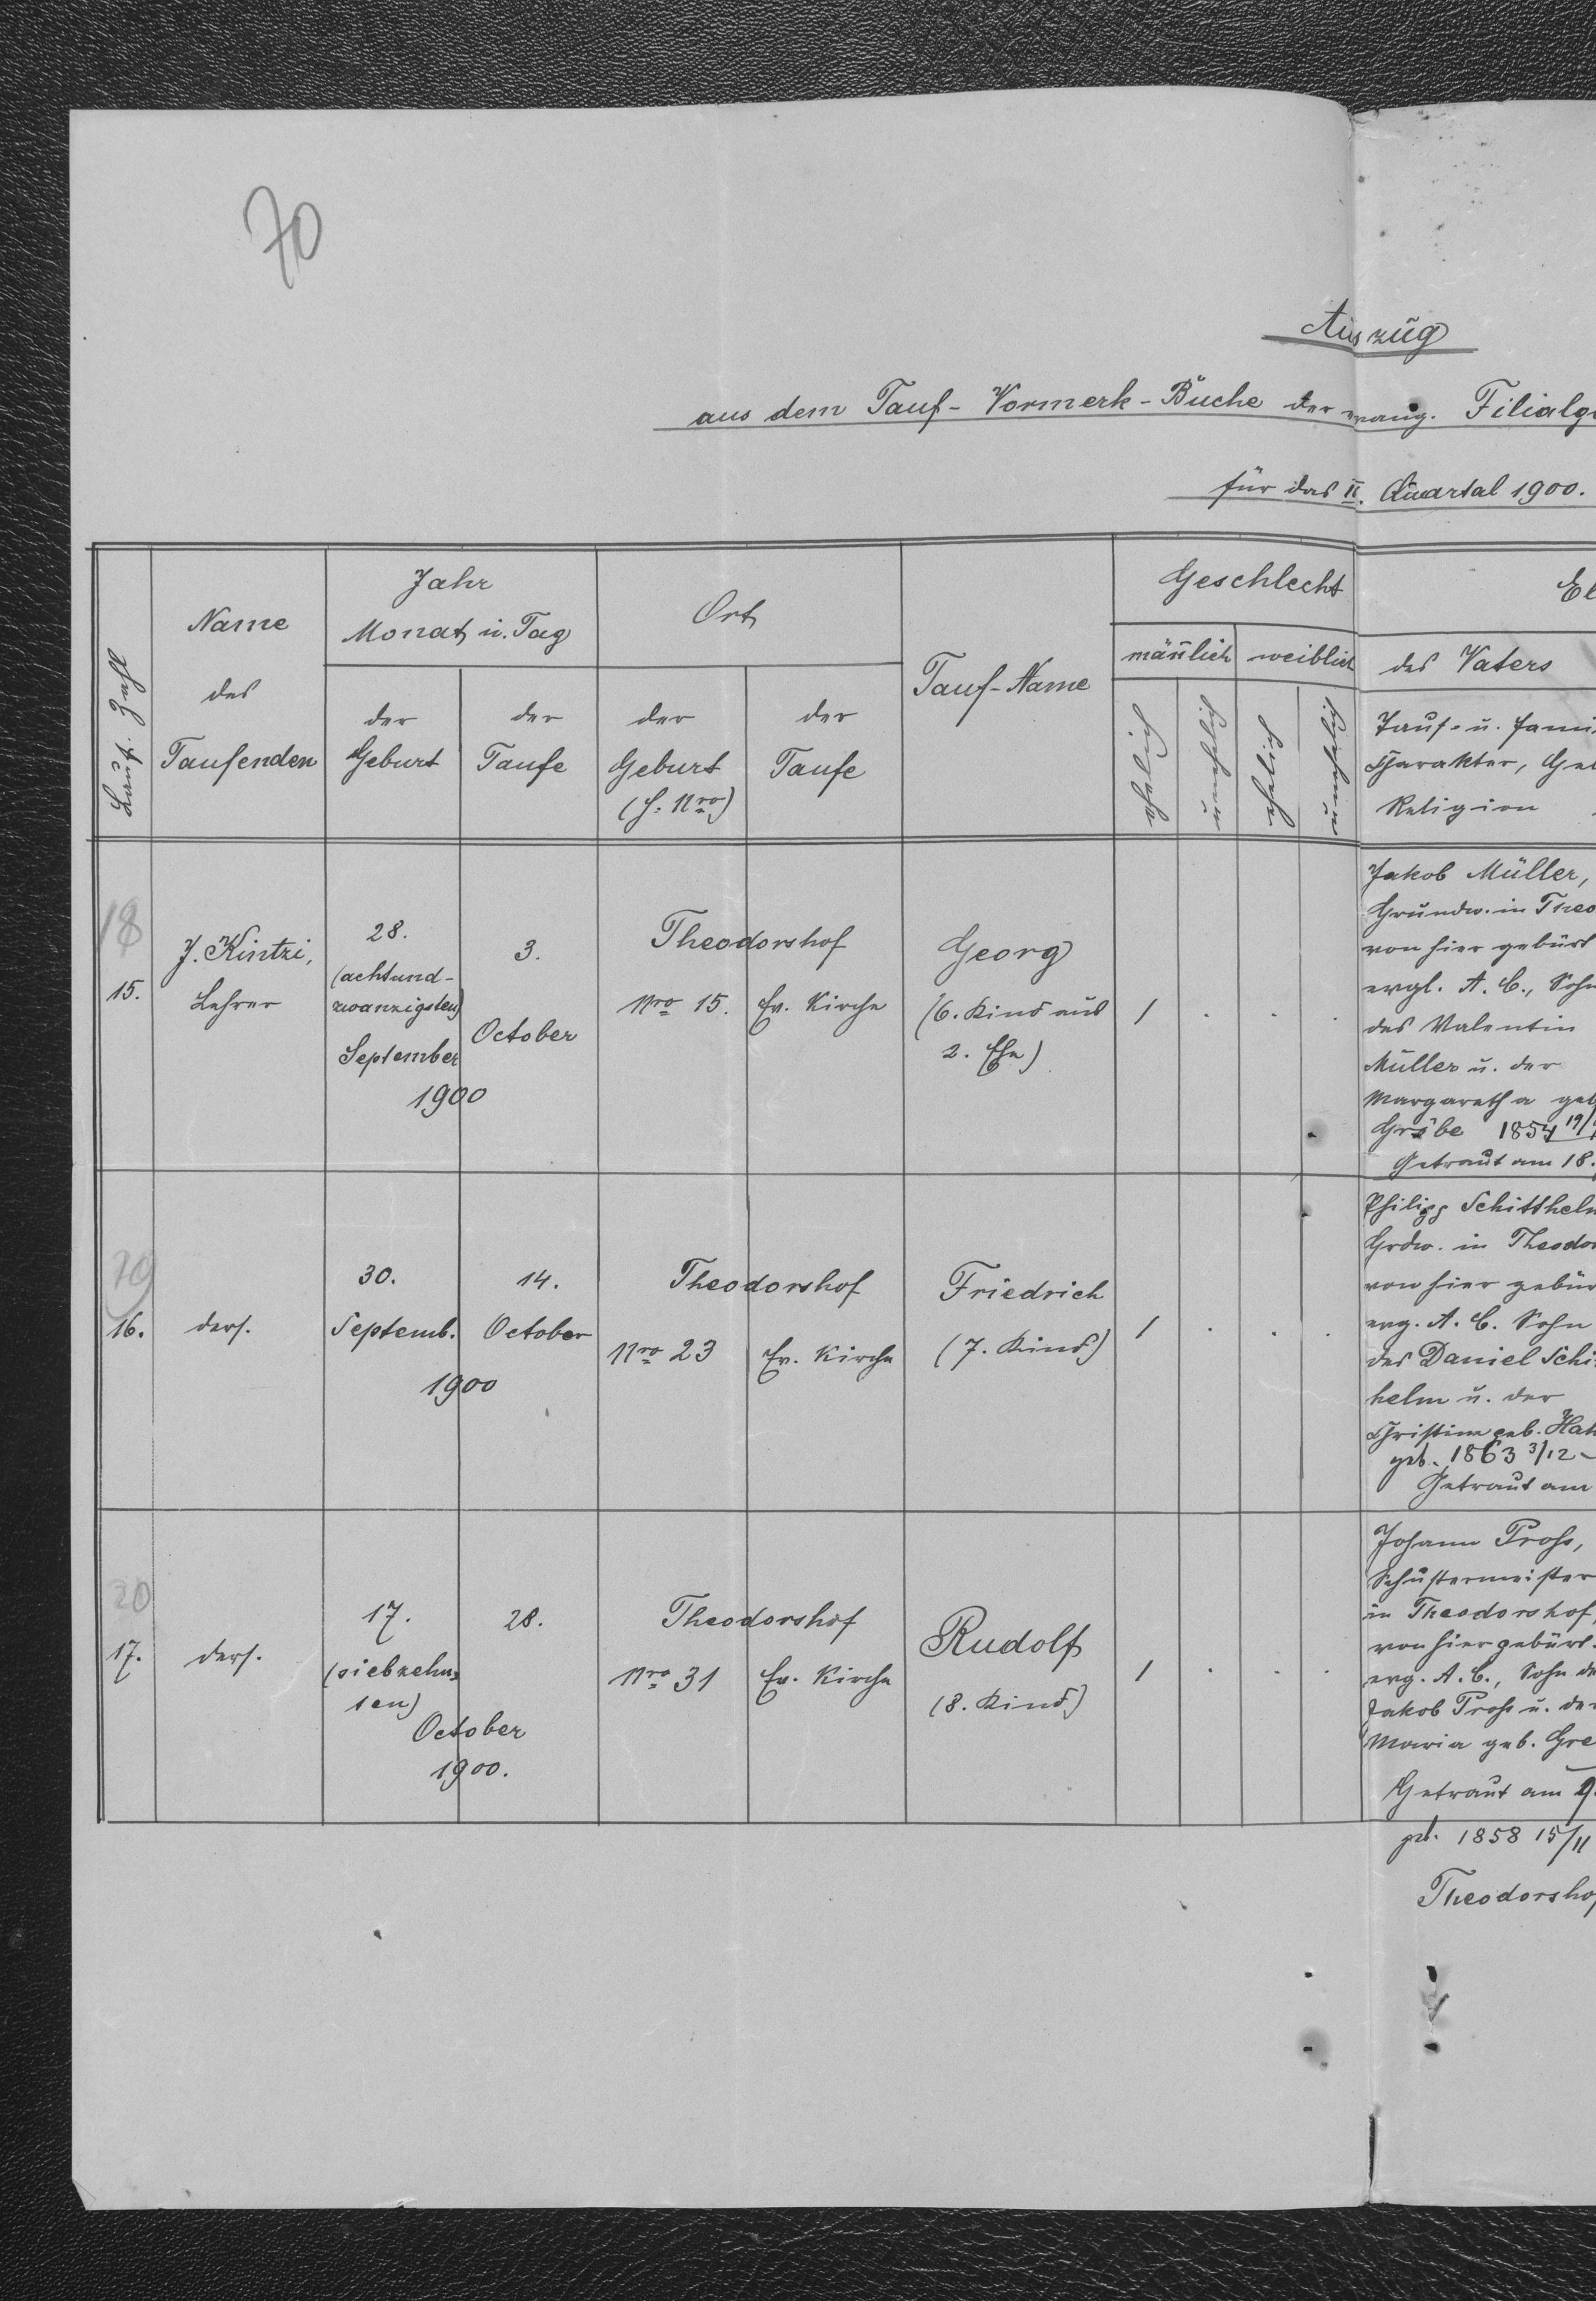 70
Auszug
aus dem Tauf-Vormerk-Buche der evang. Filialg
für das II. Quartal 1900.
Lauf. Zahl
Name
des
Taufenden
Jahr
Monat u. Tag
der
Geburt
der
Taufe
Ort
der
Geburt
(H. Nro)
der
Taufe
Tauf-Name
Geschlecht
männlich
weiblich
ehelich
unehelich
ehelich
unehelich
El
des Vaters
Tauf- u. Fami
Charakter, Ge
Religion
18
15.
J. Kintzi,
Lehrer
28.
(achtund-
zwanzigsten)
September
3.
October
1900
Theodorshof
Nro 15.
Ev. Kirche
Georg
(6. Kind aus
2. Ehe)
1
Jakob Müller,
Grundw. in Theo
von hier gebürt
evgl. A. C., Sohn
des Valentin
Müller u. der
Margaretha geb
Gröbe 1854 19/
Getraut am 18.
19
16.
ders.
30.
Septemb.
14.
October
1900
Theodorshof
Nro 23
Ev. Kirche
Friedrich
(7. Kind)
1
Philipp Schitthelm
Grdw. in Theodor
von hier gebür
evg. A. C. Sohn
des Daniel Schi
helm u. der
Christina geb. Hah
geb. 1863 3/12
Getraut am
20
17.
ders.
17.
(siebzehn-
ten)
28.
October
1900.
Theodorshof
Nro 31
Ev. Kirche
Rudolf
(8. Kind)
1
Johann Pross,
Schustermeister
in Theodorshof,
von hier gebürt.
evg. A. C., Sohn de
Jakob Pross u. der
Maria geb. Gre
Getraut am 9.
geb. 1858 15/11
Theodorshof